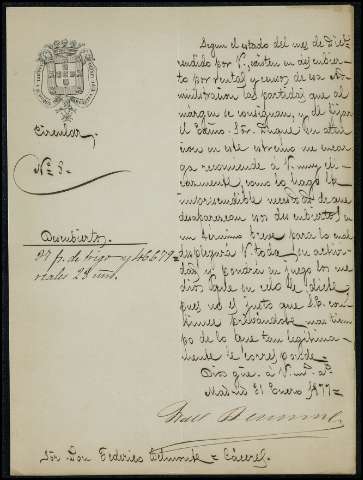 Circular
Nº 8.
Descubiertos.
27 f. de trigo y 46677=
reales 29 mrs.
Segun el estado del mes de Dicbre
rendido por V. existen en descubier-
to por rentas y censos de esa Ad-
ministracion las partidas que al
margen se consignan, y al fijarse
el Excmo. Sor. Duque en aten-
cion en este estremo me encar-
ga recomiende à V. muy efi-
cazmente, como lo hago la
imprescindible necesidad de que
desaparezcan sus descubiertos, en
un término breve para lo cual
desplegará V. toda su activi-
dad y pondrá en juego los me-
dios que en ello se
pues no es justo que S.E. con-
tinue privándose mas tiem-
po de lo que tan legitima-
mente le corresponde.
Dios gue. à V. ms. as.
Madrid 21 Enero 1877=
Sor. Don Federico Belmonte = Cáceres.